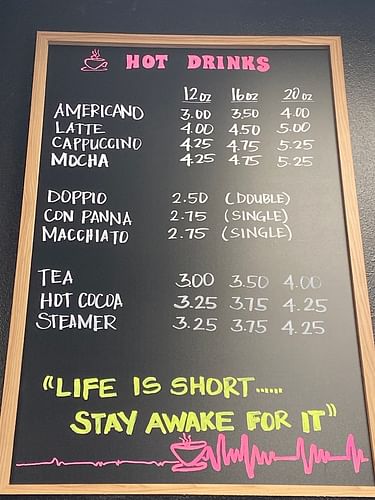 HOT DRINKS
12oz 16oz 20oz
AMERICANO 3.00 3.50 4.00
LATTE 4.00 4.50 5.00
CAPPUCCINO 4.25 4.75 5.25
MOCHA 4.25 4.75 5.25
DOPPIO 2.50 (DOUBLE)
CON PANNA 2.75 (SINGLE)
MACCHIATO 2.75 (SINGLE)
TEA 3.00 3.50 4.00
HOT COCOA 3.25 3.75 4.25
STEAMER 3.25 3.75 4.25
"LIFE IS SHORT......
STAY AWAKE FOR IT"